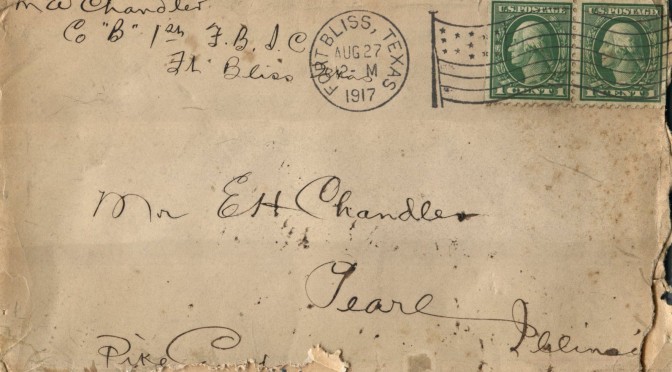 M A Chandler
Co "B" 1st F. B. S. C.
Ft Bliss Texas
FORT BLISS, TEXAS
AUG 27
12 M
1917
U.S. POSTAGE
1 CENT 1
U.S. POSTAGE
1 CENT 1
Mr E H Chandler
Pearl Illinois
Pike